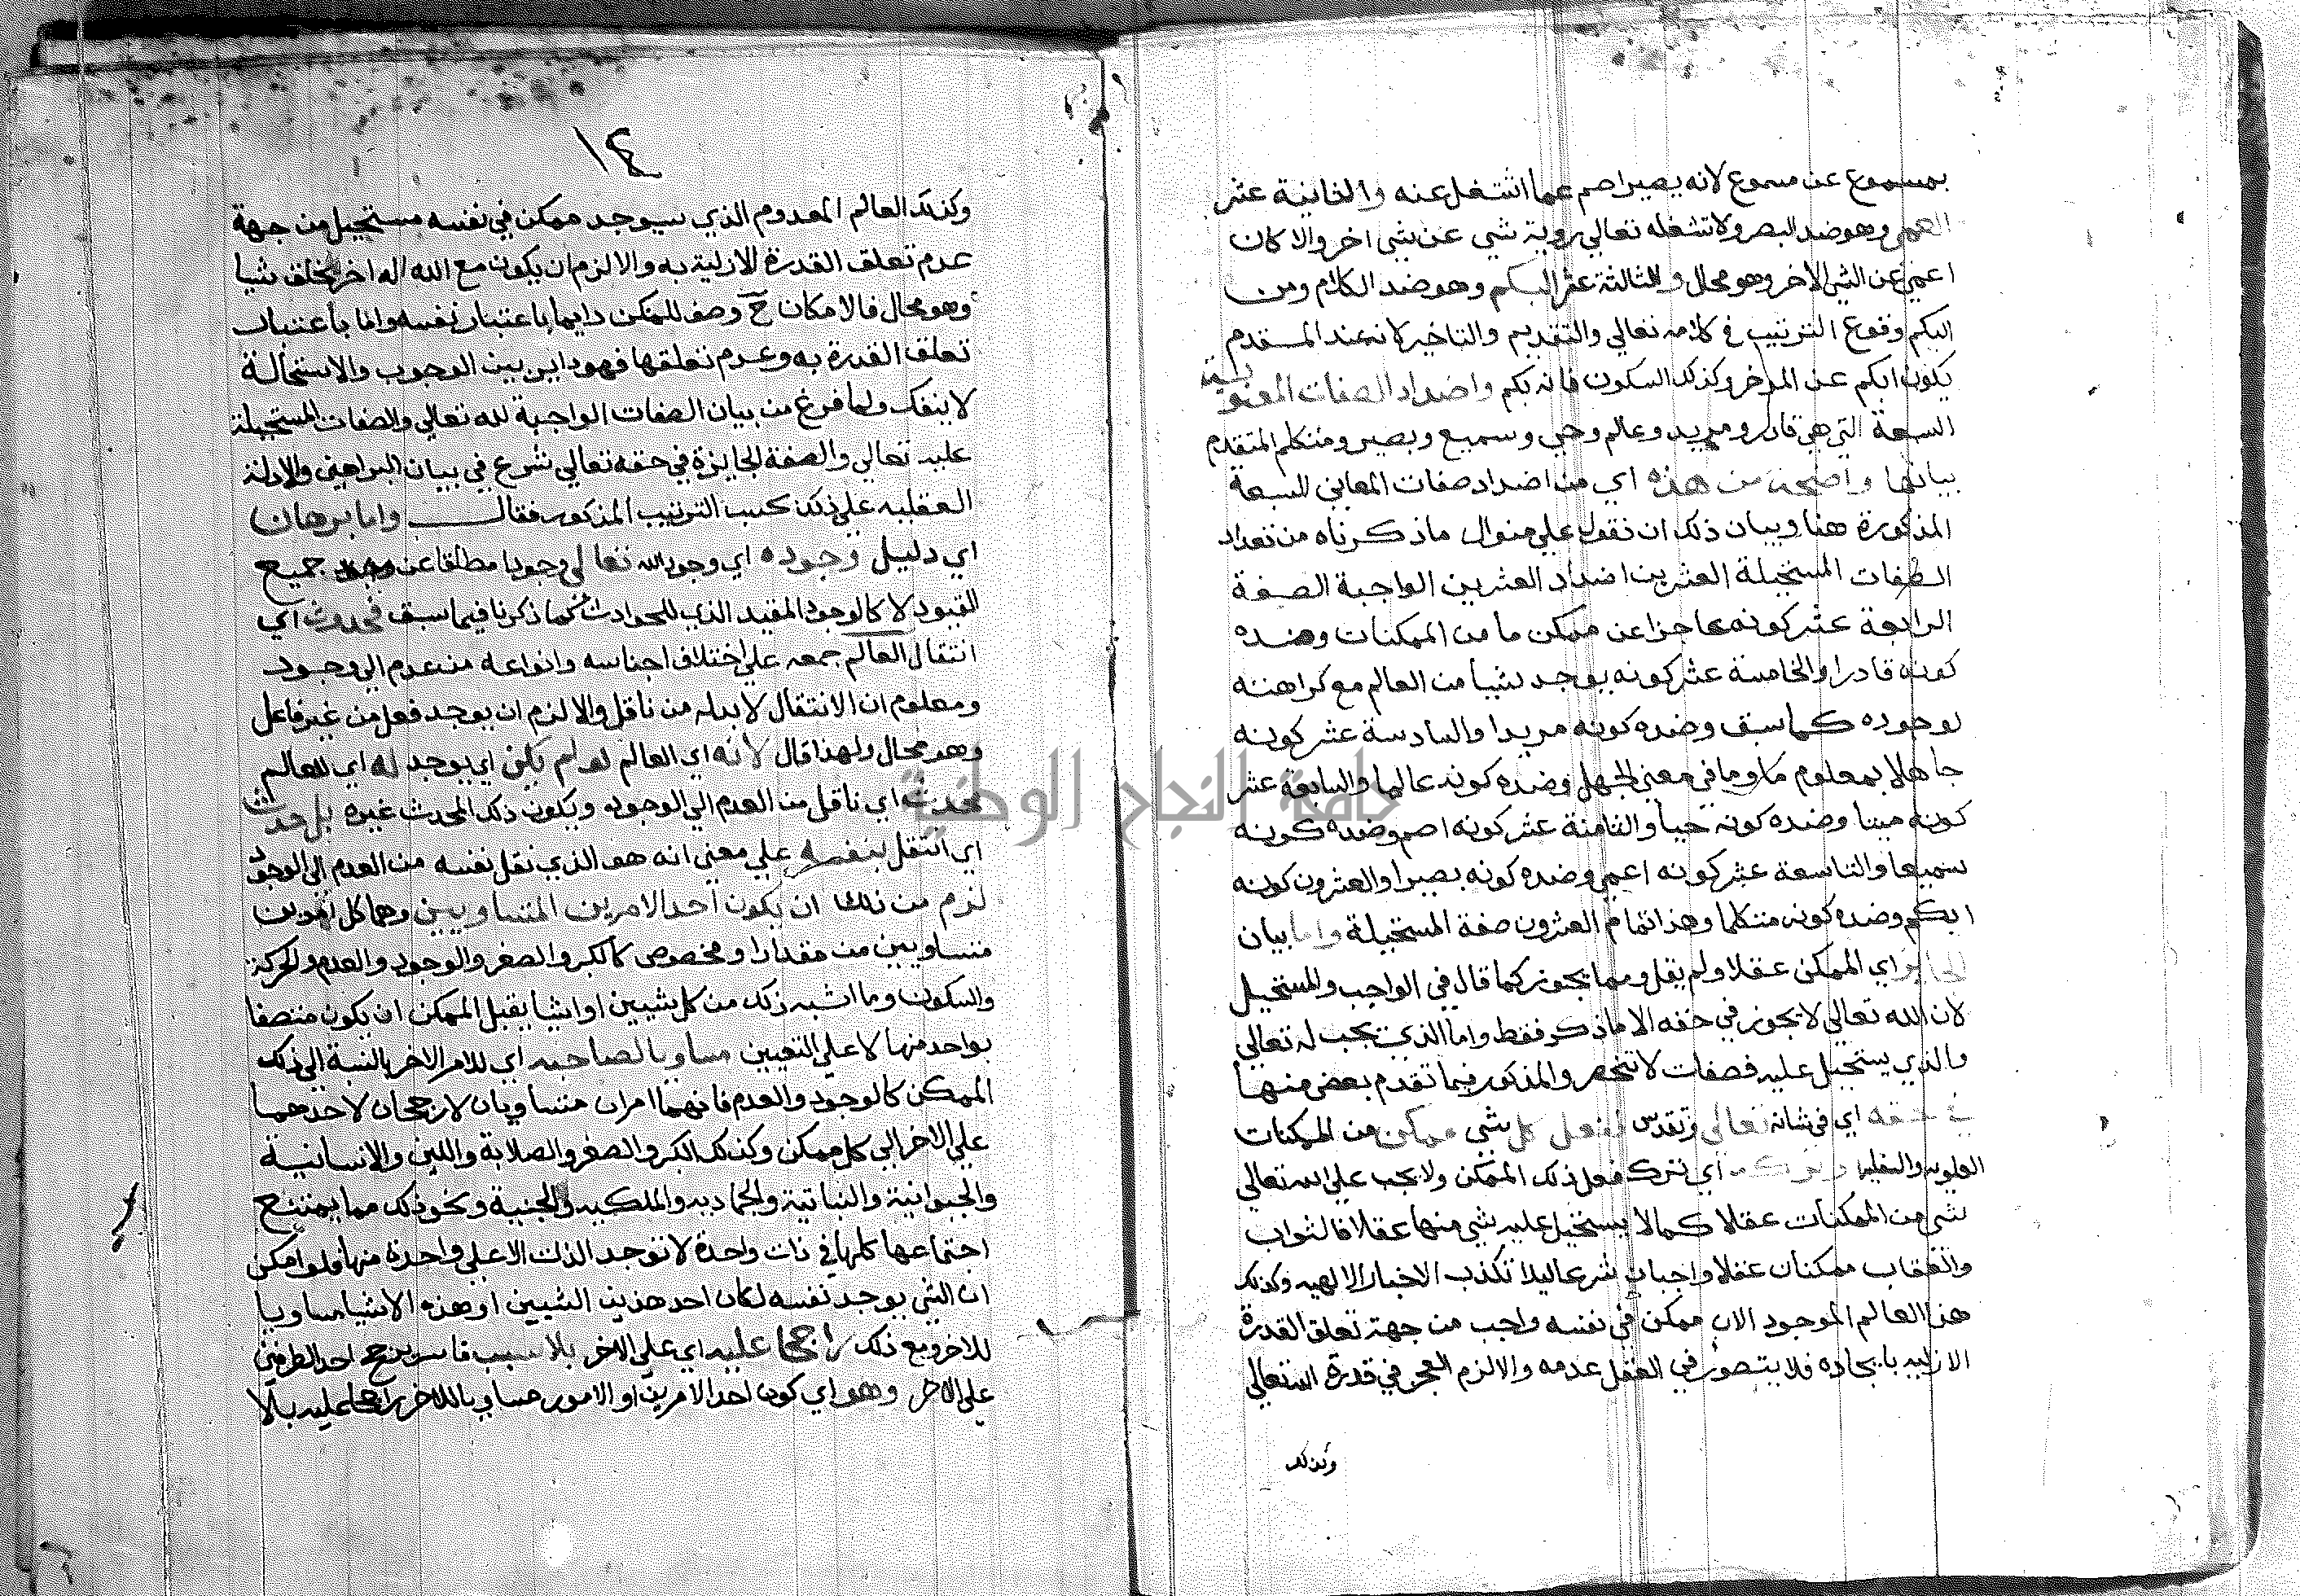 بمسموع عن مسموع لانه يصير اصم عما اشتغل عنه والثانية عشر
العمي وهو ضد البصر ولا تشغله تعالي روية شي عن شي اخر والا كان
اعمي عن الشي الاخر وهو محال والثالثة عشر البكم وهو ضد الكلام ومن
البكم وقوع الترتيب في كلامه تعالي والتقديم والتاخير لانه عند المتقدم
يكون ابكم عن الموخر وكذلك السكوت فانه بكم واضداد الصفات المعنوية
السبعة التي هي قادر ومريد وعالم وحي وسميع وبصير ومتكلم المتقدم
بيانها واضحة من هذه اي من اضداد صفات المعاني السبعة
المذكورة هنا وبيان ذلك ان نقول علي منوال ما ذكرناه من تعداد
الصفات المستحيلة العشرين اضداد العشرين الواجبة الصفة
الرابعة عشر كونه عاجزا عن ممكن ما من الممكنات وضده
كونه قادرا والخامسة عشر كونه يوجد شيا من العالم مع كراهته
لوجوده كما سبق وضده كونه مريدا والسادسة عشر كونه
جاهلا بمعلوم ما وما في معني الجهل وضده كونه عالما والسابعة عشر
كونه ميتا وضده كونه حيا والثامنة عشر كونه اصم وضده كونه
سميعا والتاسعة عشر كونه اعمي وضده كونه بصيرا والعشرون كونه
ابكم وضده كونه متكلما وهذا تمام العشرون صفة المستحيلة واما بيان
الجايز اي الممكن عقلا ولم يقل ومما يجوز كما قال في الواجب والمستحيل
لان الله تعالي لا يجوز في حقه الا ما ذكر فقط واما الذي يجب له تعالي
والذي يستحيل عليه فصفات لا تنحصر والمذكور فيما تقدم بعض منها
في حقه اي في شانه تعالي وتقدس ففعل كل شي ممكن من الممكنات
العلويه والسفليه او تركه اي ترك فعل ذلك الممكن ولا يجب علي الله تعالي
شي من الممكنات عقلا كما لا يستحيل عليه شي منها عقلا فالثواب
والعقاب ممكنان عقلا واجبان شرعا ليلا تكذب الاخبار الالهيه وكذلك
هذا العالم الموجود الان ممكن في نفسه واجب من جهة تعلق القدرة
الازليه بايجاده فلا يتصور في العقل عدمه والا لزم العجز في قدرة الله تعالي
وكذلك
١٤
وكذلك العالم المعدوم الذي سيوجد ممكن في نفسه مستحيل من جهة
عدم تعلق القدرة الازلية به والا لزم ان يكون مع الله اله اخر يخلق شيا
وهو محال فالامكان ح وصف للممكن دايما باعتبار نفسه واما باعتبار
تعلق القدرة به وعدم تعلقها فهو داير بين الوجوب والاستحالة
لا ينفك ولما فرغ من بيان الصفات الواجبة لله تعالي والصفات المستحيلة
عليه تعالي والصفة الجايزة في حقه تعالي شرع في بيان البراهين والادلة
العقليه علي ذلك بحسب الترتيب المذكور فقال واما برهان
اي دليل وجوده اي وجود الله تعالي وجودا مطلقا عن جميع
القيود لا كالوجود المقيد الذي للحوادث كما ذكرنا فيما سبق فحدوث اي
انتقال العالم جمعه علي اختلاف اجناسه وانواعه من عدم الي وجود
ومعلوم ان الانتقال لا بد له من ناقل والا لزم ان يوجد فعل من غير فاعل
وهو محال ولهذا قال لانه اي العالم لو لم يكن اي يوجد له اي للعالم
محدث اي ناقل من العدم الي الوجود ويكون ذلك المحدث غيره بل حدث
اي انتقل بنفسه علي معني انه هو الذي نقل نفسه من العدم الي الوجود
لزم من ذلك ان يكون احد الامرين المتساويين وهما كل امرين
متساويين من مقدار او مخصوص كالكبر والصغر والوجود والعدم والحركة
والسكون وما اشبه ذلك من كل شيين او اشيا يقبل الممكن ان يكون متصفا
بواحد منها لا علي التعيين مساويا لصاحبه اي للامر الاخر بالنسبة الي ذلك
الممكن كالوجود والعدم فانهما امران متساويان لا رجحان لاحدهما
علي الاخر الي كل ممكن وكذلك الكبر والصغر والصلابة واللين والانسانية
والحيوانية والنباتية والجماديه والملكيه والجنية ونحو ذلك مما يمتنع
اجتماعها كلها في ذات واحدة لا توجد الذات الا علي واحدة منها فلو امكن
ان الشي يوجد نفسه لكان احد هذين الشيين او هذه الاشيا مساويا
للاخر ومع ذلك راجحا عليه اي علي الاخر بلا سبب احد الطرفين
علي الاخر وهو اي كون احد الامرين او الامور مساويا للاخر راجحا عليه بلا
جامعة النجاح الوطنية